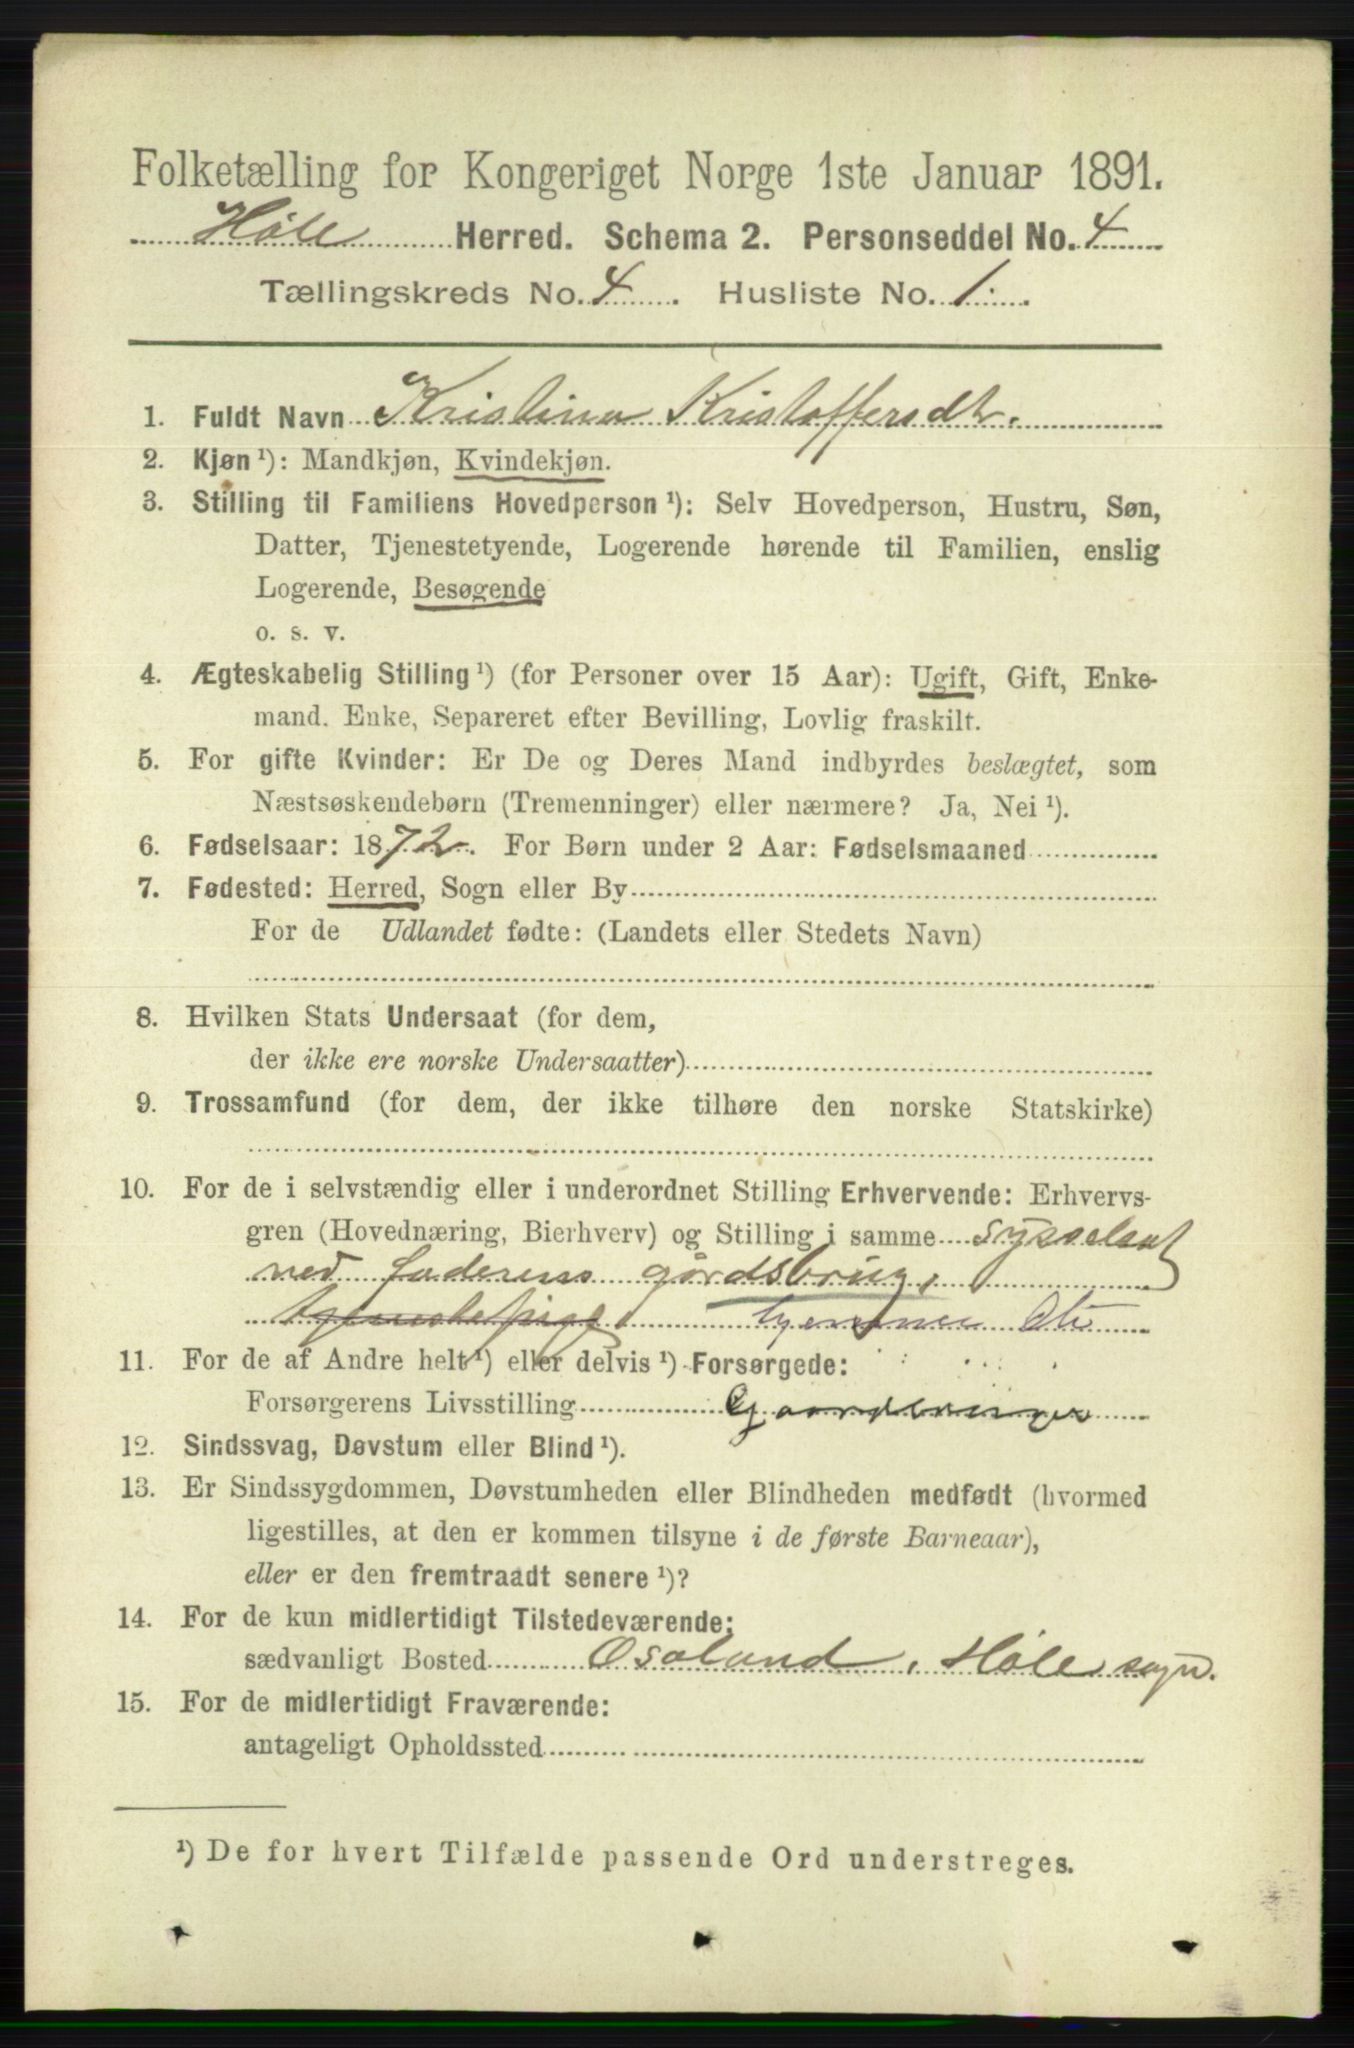 Folketælling for Kongeriget Norge 1ste Januar 1891.
Höle Herred. Schema 2. Personseddel No. 4
Tællingskreds No. 4. Husliste No. 1.
1. Fuldt Navn Kristina Kristoffersdt.
2. Kjøn ¹): Mandkjøn, Kvindekjøn.
3. Stilling til Familiens Hovedperson ¹): Selv Hovedperson, Hustru, Søn,
Datter, Tjenestetyende, Logerende hørende til Familien, enslig
Logerende, Besøgende
o. s. v.
4. Ægteskabelig Stilling ¹) (for Personer over 15 Aar): Ugift, Gift, Enke-
mand. Enke, Separeret efter Bevilling, Lovlig fraskilt.
5. For gifte Kvinder: Er De og Deres Mand indbyrdes beslægtet, som
Næstsøskendebørn (Tremenninger) eller nærmere? Ja, Nei ¹).
6. Fødselsaar: 1872. For Børn under 2 Aar: Fødselsmaaned
7. Fødested: Herred, Sogn eller By
For de Udlandet fødte: (Landets eller Stedets Navn)
8. Hvilken Stats Undersaat (for dem,
der ikke ere norske Undersaatter)
9. Trossamfund (for dem, der ikke tilhøre den norske Statskirke)
10. For de i selvstændig eller i underordnet Stilling Erhvervende: Erhvervs-
gren (Hovednæring, Bierhverv) og Stilling i samme sysselsat
ved faderens gårdsbrug,
tjenestepige
11. For de af Andre helt ¹) eller delvis ¹) Forsørgede:
Forsørgerens Livsstilling
12. Sindssvag, Døvstum eller Blind ¹).
13. Er Sindssygdommen, Døvstumheden eller Blindheden medfødt (hvormed
ligestilles, at den er kommen tilsyne i de første Barneaar),
eller er den fremtraadt senere ¹)?
14. For de kun midlertidigt Tilstedeværende:
sædvanligt Bosted Osaland, Höle sogn.
15. For de midlertidigt Fraværende:
antageligt Opholdssted
¹) De for hvert Tilfælde passende Ord understreges.